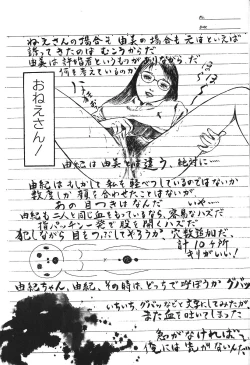 ねえさんの場合も由美の場合も元はといえば
誘ってきたのは むこうからだ
由美は許婚者というものが ありながら、だ
何を考えているのか
おねえさん！
由紀は由美とは違う、絶対に…
由紀はもしかして私を軽べつしているのではないか
数度しか顔を合わせたことはないが、
あの目つきはなんだ いや…
由紀も二人と同じ血をもっているなら、容易なハズだ
指パッチン一発で股を開くハズだ
犯しながら目をつぶしてやろうか、穴数追加だ
計10ヶ所
キリがいい！
由紀ちゃん、由紀、その時は、どっちで呼ぼうか グバッ
いちいち、グバッなどて文字にしてみたが、
また血を吐いてしまった
急がなければ
俺には先がないんだ